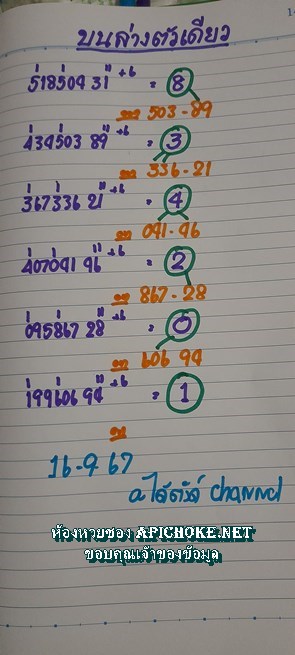 บนล่างตัวเดียว
518504 31 +6 = 8
503-89
434503 89 +6 = 3
336-21
367336 21 +6 = 4
041-96
407041 96 +6 = 2
867-28
095867 28 +6 = 0
606 94
199606 94 +6 = 1
16-9 67
channel
ห้องหวยซอง APICHOKE.NET
ขอบคุณเจ้าของข้อมูล